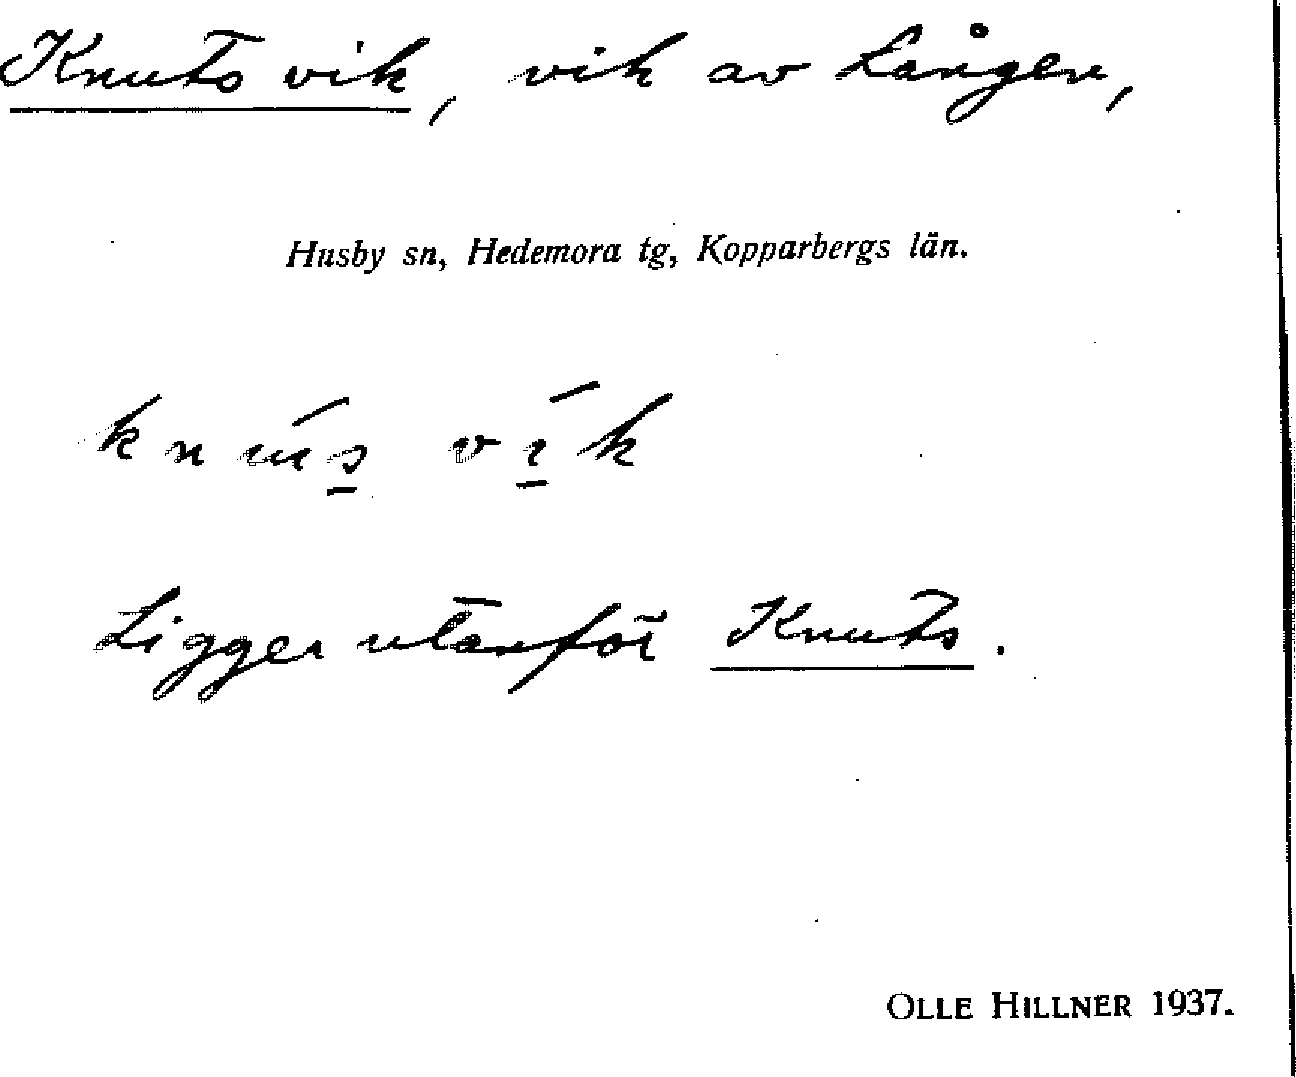 Knuts vik, vik av Lången,
Husby sn, Hedemora tg, Kopparbergs län.
Ligger utanför Knuts.
OLLE HILLNER 1937.